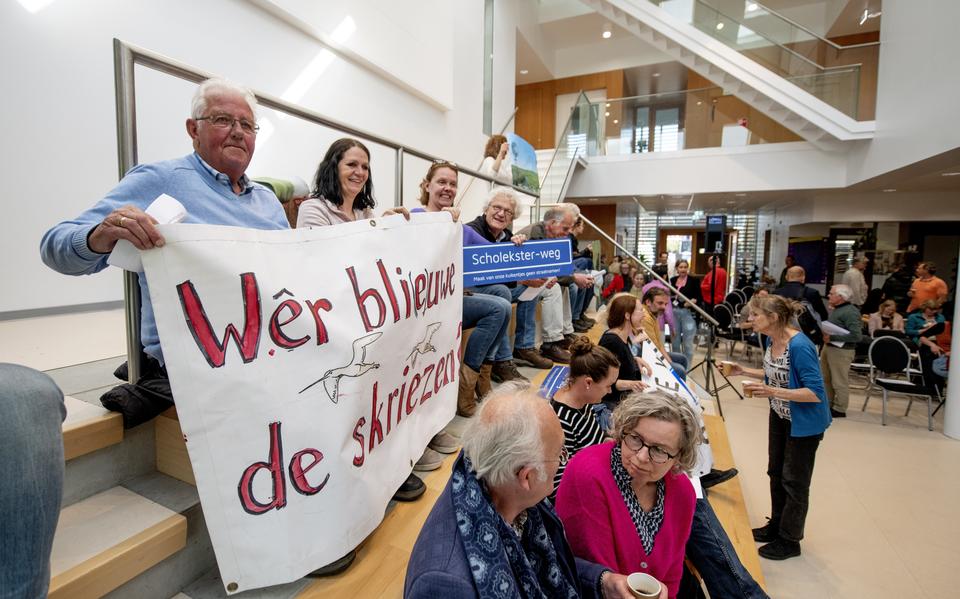 Wêr bli(e)uwe
de skriezen?
Scholekster-weg
Maak van onze kuikentjes geen straatnamen!